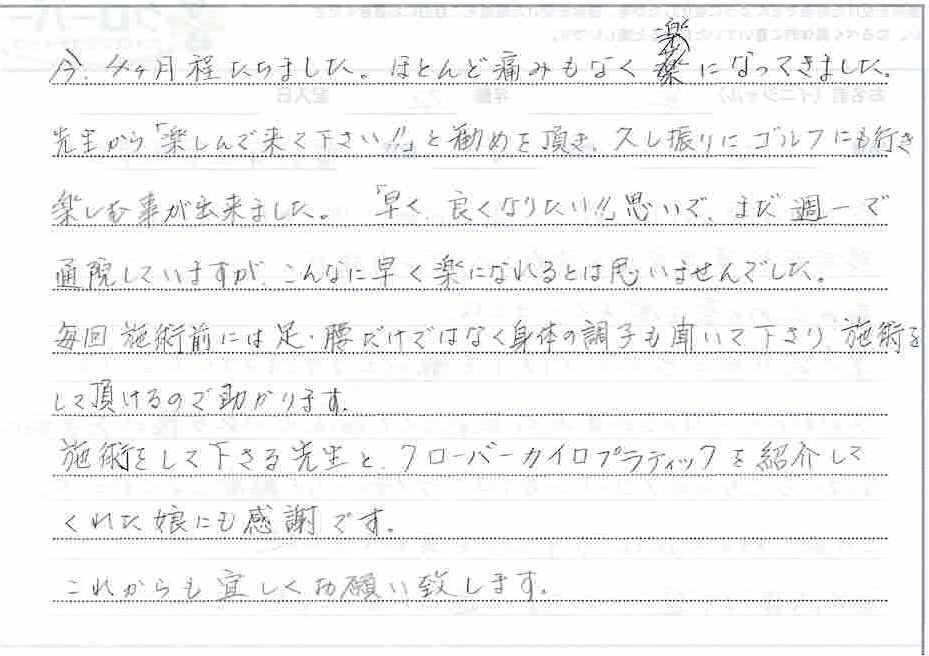 今、4ヶ月程たちました。ほとんど痛みもなく楽になってきました。
先生から「楽しんで来て下さい!!」と勧めを頂き、久し振りにゴルフにも行き
楽しむ事が出来ました。「早く、良くなりたい!!」思いで、まだ週一で
通院していますが、こんなに早く楽になれるとは思いませんでした。
毎回 施術前には足・腰だけではなく身体の調子も聞いて下さり、施術を
して頂けるので助かります。
施術をして下さる先生と、クローバーカイロプラティックを紹介して
くれた娘にも感謝です。
これからも宜しくお願い致します。